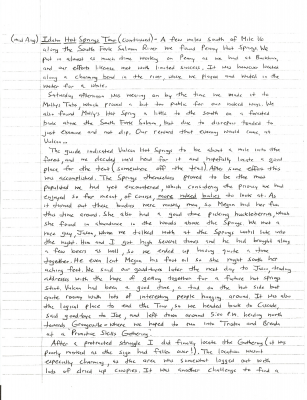 (mid Aug) Idaho Hot Springs Time (continued) - A few miles south of Mile 16
along the South Fork Salmon River we found Penny Hot Springs. We
put in almost as much time working on Penny as we had at Buckum,
and our efforts likewise met with limited success. It was however located
along a charming bend in the river, where we played and waded in the
water for a while.
Saturday afternoon was moving on by the time we made it to
Molly's Tubs, which proved a bit too public for our naked ways. We
also found Molly's Hot Spring a little to the south on a forested
track above the South Fork Salmon, but due to disrepair decided to
just examine and not dip. Our reward that evening would come, at
Vulcan.
The guide indicated Vulcan Hot Springs to be about a mile into the
forest, and we decided we'd head for it and hopefully locate a good
place for the tent somewhere off the trail. After some effort this
was accomplished. The Springs themselves proved to be the most
populated we had yet encountered, which considering the privacy we had
enjoyed so far meant, of course, more naked bodies to look at. As
it turned out those bodies were mostly men, so Megan had her fun
this time around. She also had a good time picking huckleberries, which
she found in abundance in the woods above the Springs. We met a
nice guy, Juan, whom we talked with at the Springs until late into
the night. Him and I got high several times and he had brought along
a few beers as well, so we ended up having quite a time
together. He even lent Megan his foot oil so she might sooth her
aching feet. We said our goodbyes later the next day to Juan, trading
addresses with the hope of getting together for a future hot springs
stint. Vulcan had been a good time, a tad on the hot side but
quite roomy with lots of interesting people hanging around. It was also
the logical place to end the Tour, so we headed back to Cascade,
said goodbye to Ike, and left town around 5:00 P.M. heading north
towards Grangeville - where we hoped to run into Tristan and Brenda
at a Primitive Skills Gathering.
After a protracted struggle I did finally locate the Gathering (it was
poorly marked as the sign had fallen over!). The location wasn't
especially charming, as the area was somewhat logged out with
lots of dried up cowpies. It was another challenge to find a